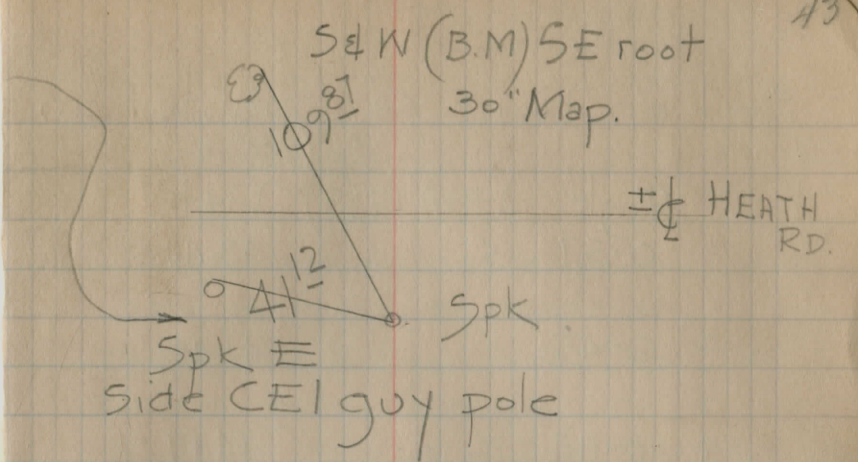 43
S & W (B.M) SE root
30" Map.
109 87
± ℄ HEATH
RD.
41 12
Spk
Spk E
side CEI guy pole